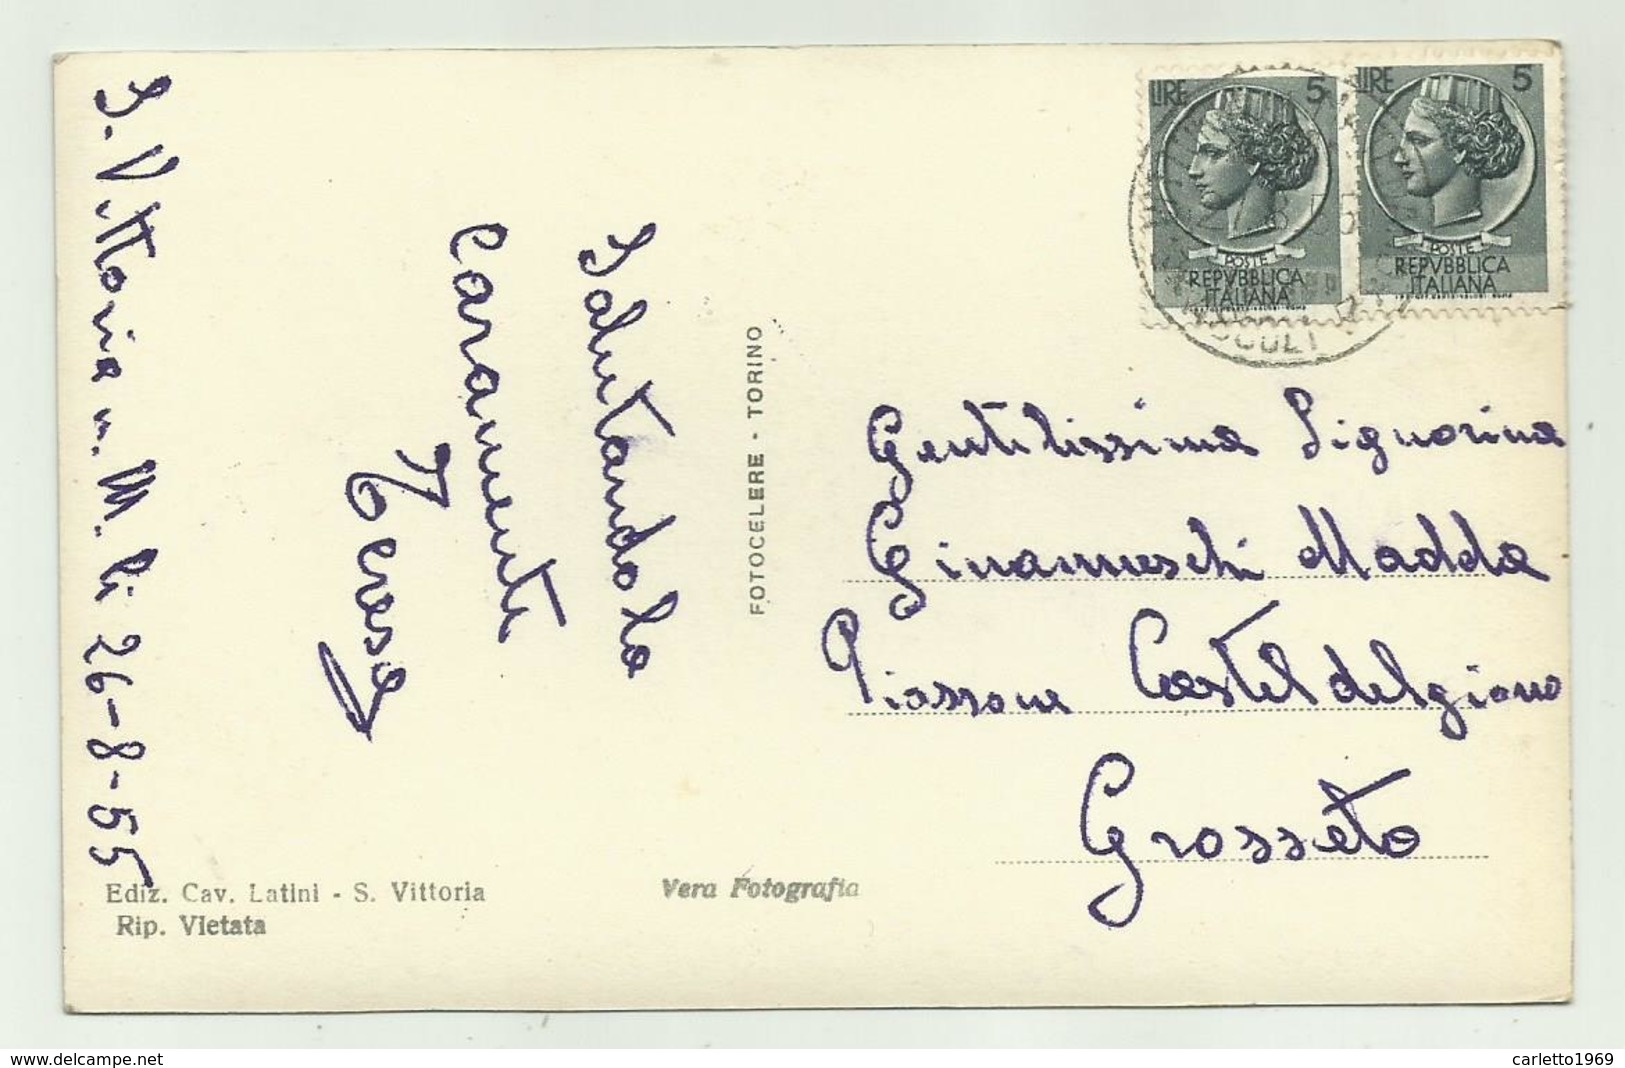 S. Vittoria in M. li 26-8-55
Salutandola
Caramente
Teresa
FOTOCELERE - TORINO
LIRE 5
POSTE
REPVBBLICA
ITALIANA
LIRE 5
POSTE
REPVBBLICA
ITALIANA
Gentilissima Signorina
Ginanneschi Madda
Casteldelpiano
Grosseto
Ediz. Cav. Latini - S. Vittoria
Rip. Vietata
Vera Fotografia
www.delcampe.net
carletto1969